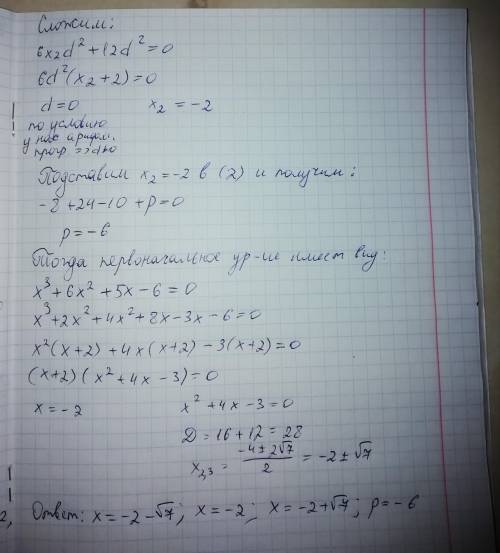 Сложим:
6x₂d² + 12d² = 0
6d²(x₂+2) = 0
d=0 x₂ = -2
по условию
у нас арифм.
прогр => d≠0
Подставим x₂ = -2 в (2) и получим:
-8 + 24 - 10 + p = 0
p = -6
Тогда первоначальное ур-ие имеет вид:
x³ + 6x² + 5x - 6 = 0
x³ + 2x² + 4x² + 8x - 3x - 6 = 0
x²(x+2) + 4x(x+2) - 3(x+2) = 0
(x+2)(x² + 4x - 3) = 0
x = -2 x² + 4x - 3 = 0
D = 16 + 12 = 28
x₂,₃ = (-4 ± 2√7)/2 = -2 ± √7
Ответ: x = -2 - √7; x = -2; x = -2 + √7; p = -6